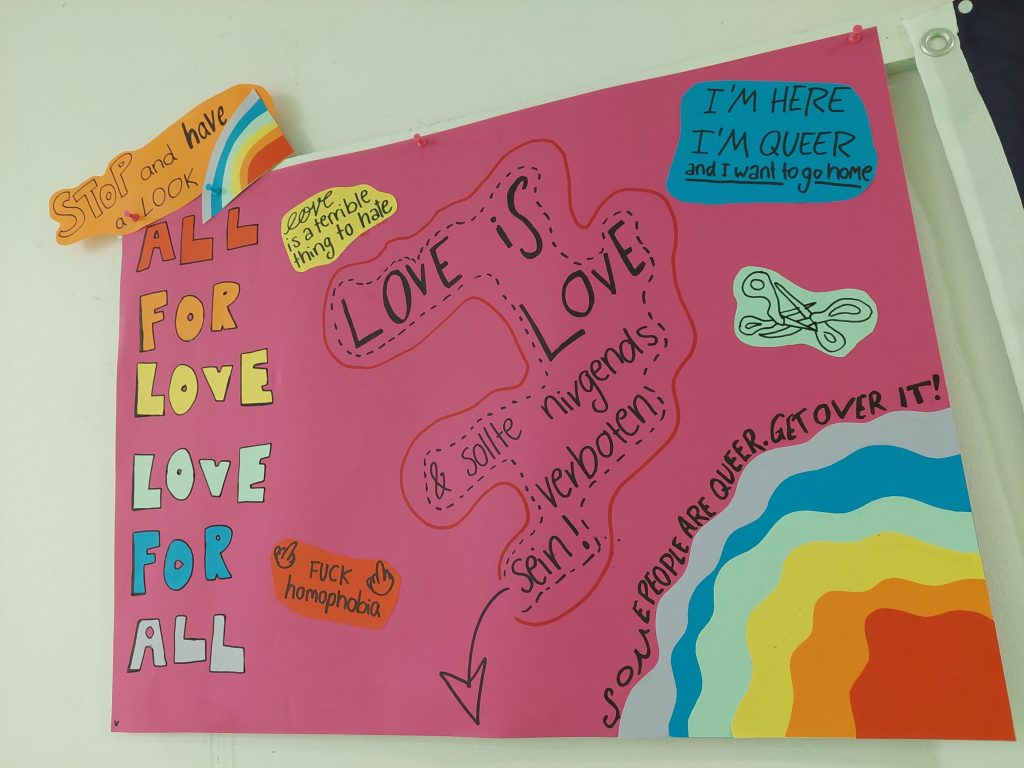 STOP and have
a LOOK
ALL
FOR
LOVE
LOVE
FOR
ALL
love
is a terrible
thing to hate
LOVE iS
LOVE
& sollte nirgends
verboten
sein!
I'M HERE
I'M QUEER
and I want to go home
FUCK
homophobia
SOME PEOPLE ARE QUEER. GET OVER IT!